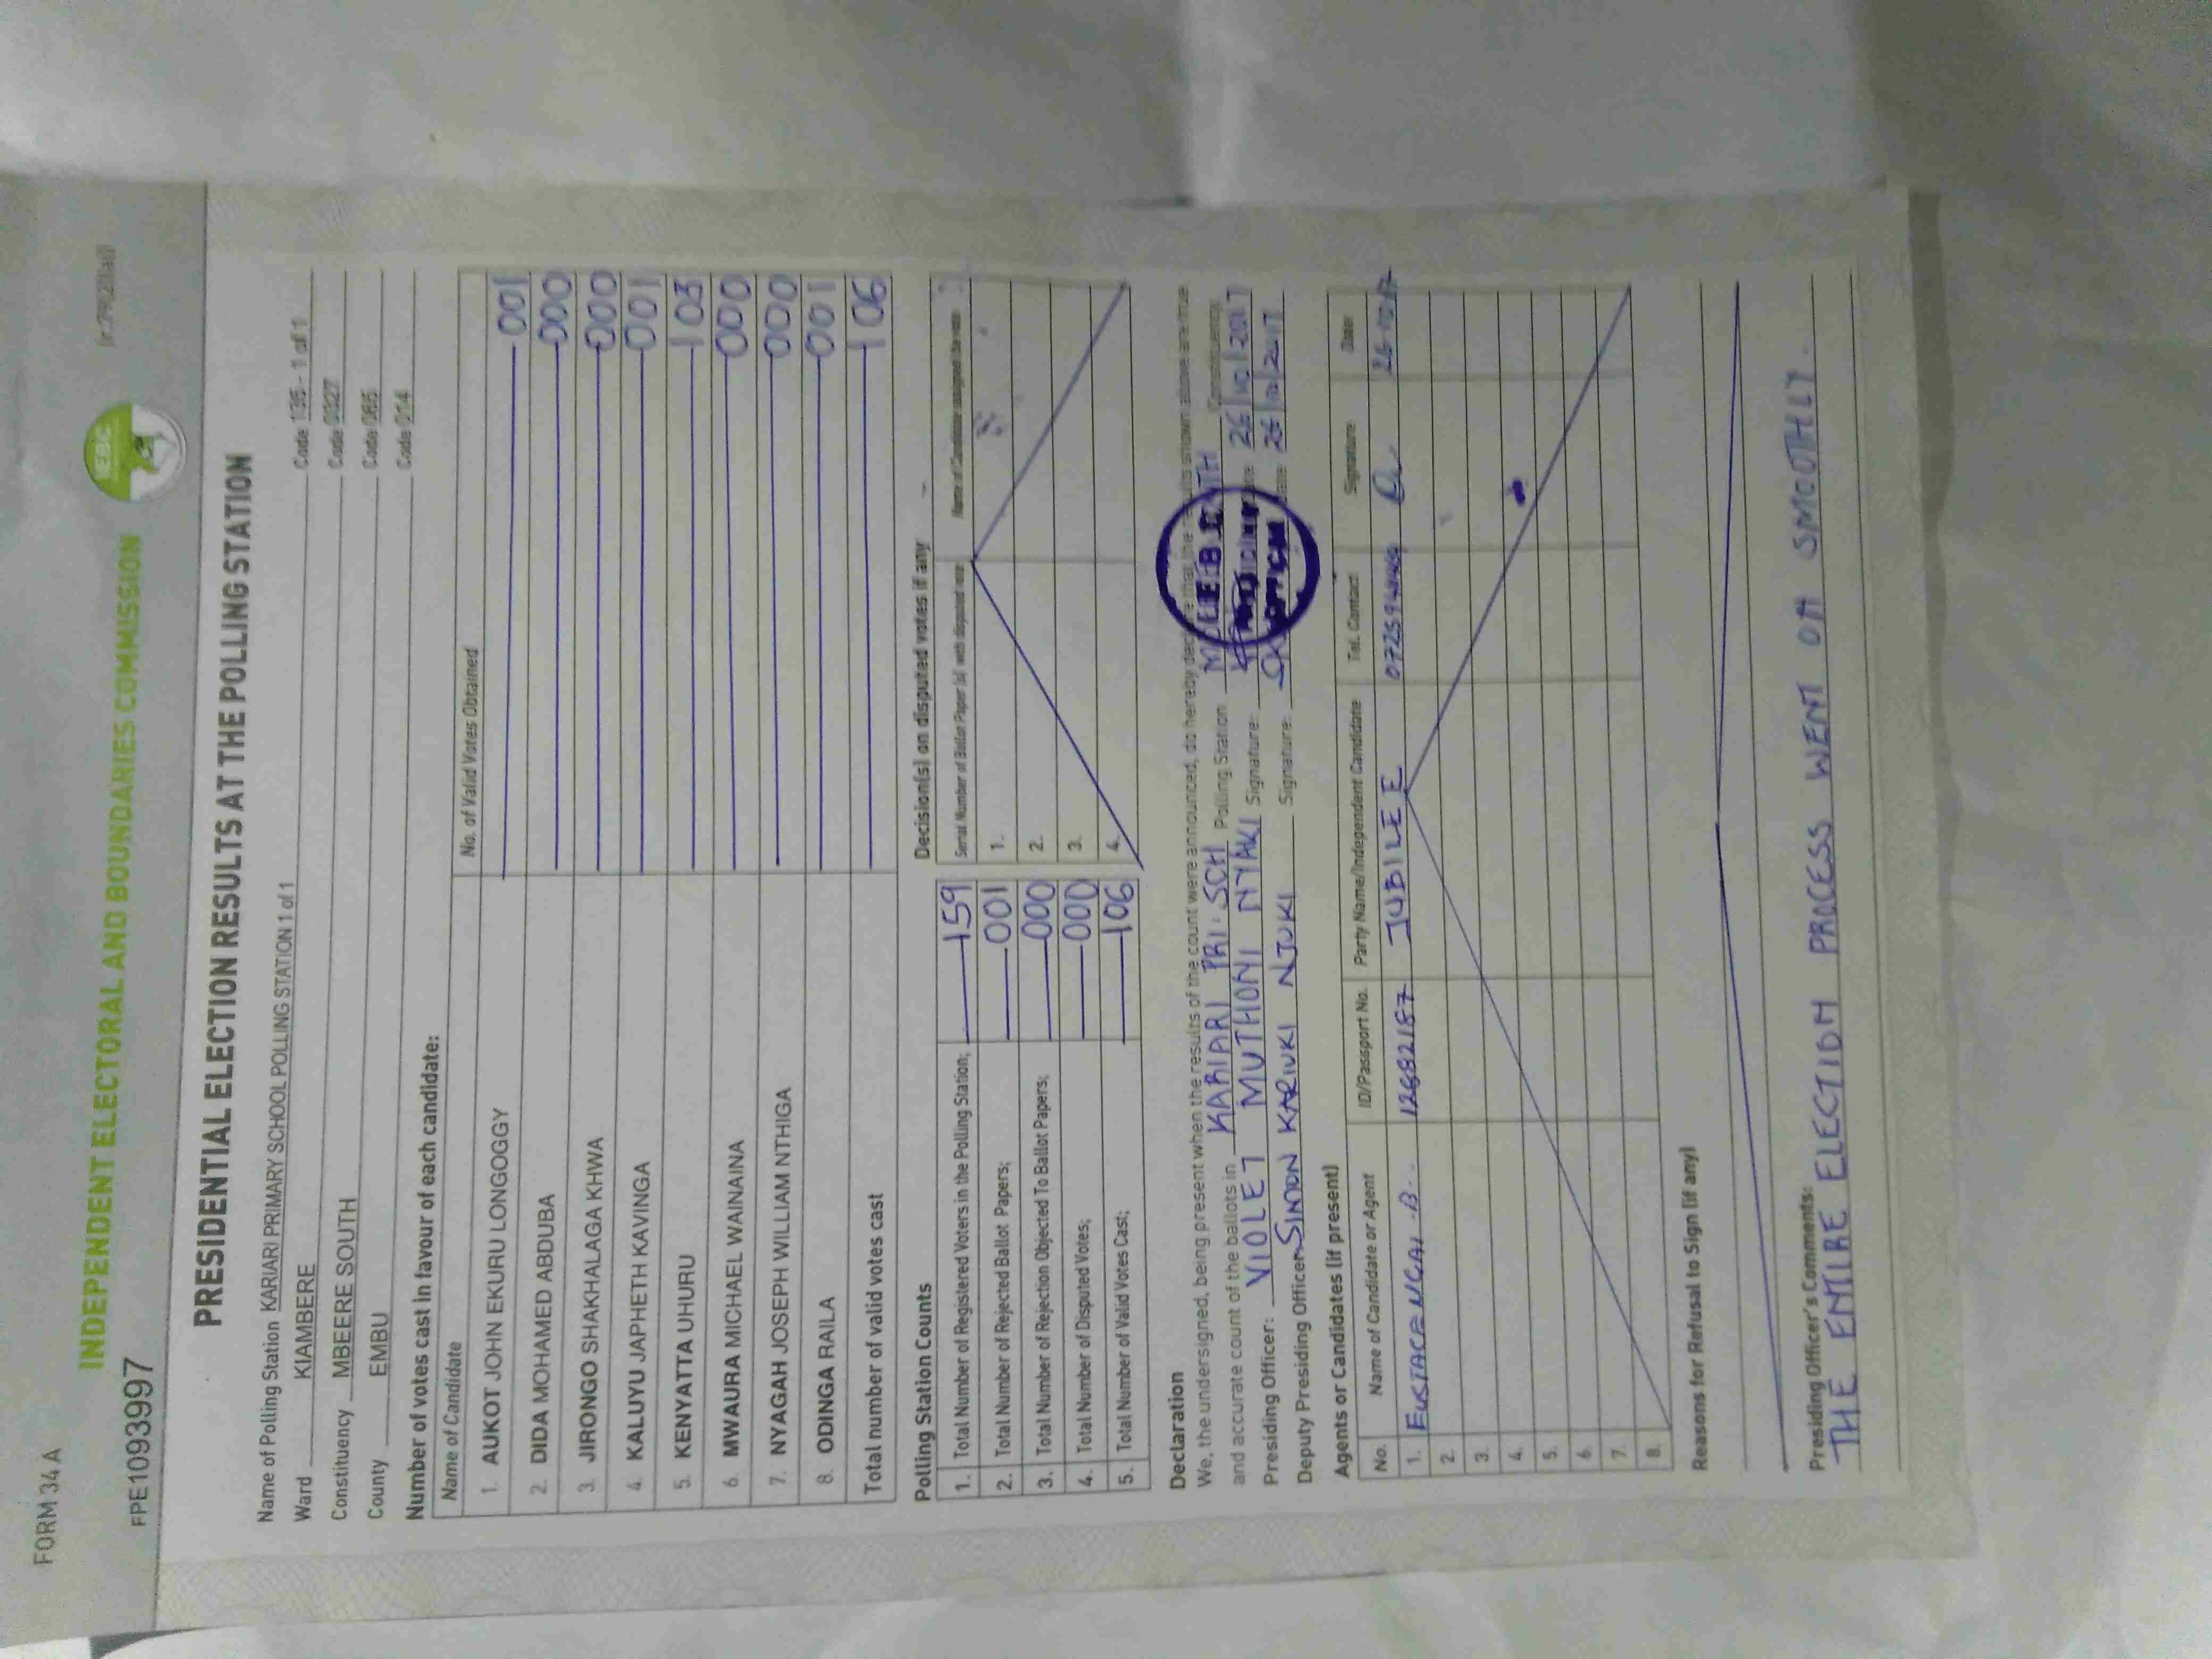 FORM 34 A
INDEPENDENT ELECTORAL AND BOUNDARIES COMMISSION
IEBC
FPE1093997
PRESIDENTIAL ELECTION RESULTS AT THE POLLING STATION
Name of Polling Station KARIARI PRIMARY SCHOOL POLLING STATION 1 of 1
Ward KIAMBERE Code 135 - 1 of 1
Constituency MBEERE SOUTH Code 0327
County EMBU Code 065
Code 014
Number of votes cast in favour of each candidate:
Name of Candidate No. of Valid Votes Obtained
1. AUKOT JOHN EKURU LONGOGGY 001
2. DIDA MOHAMED ABDUBA 000
3. JIRONGO SHAKHALAGA KHWA 000
4. KALUYU JAPHETH KAVINGA 001
5. KENYATTA UHURU 103
6. MWAURA MICHAEL WAINAINA 000
7. NYAGAH JOSEPH WILLIAM NTHIGA 000
8. ODINGA RAILA 001
Total number of valid votes cast 106
Polling Station Counts
1. Total Number of Registered Voters in the Polling Station; 159
2. Total Number of Rejected Ballot Papers; 001
3. Total Number of Rejection Objected To Ballot Papers; 000
4. Total Number of Disputed Votes; 000
5. Total Number of Valid Votes Cast; 106
Decision(s) on disputed votes if any
Serial Number of Ballot Paper (s) with disputed vote Name of Candidate assigned the vote
1.
2.
3.
4.
Declaration
We, the undersigned, being present when the results of the count were announced, do hereby declare that the results shown above are true
and accurate count of the ballots in KARIARI PRI. SCH Polling Station Constituency
Presiding Officer: VIOLET MUTHONI NYAKI Signature: Date 26/10/2017
Deputy Presiding Officer: SIMON KARIUKI NJUKI Signature: Date 26/10/2017
Agents or Candidates (if present)
No. Name of Candidate or Agent ID/Passport No. Party Name/Independent Candidate Tel. Contact Signature Date
1. EUSTACE NGAI .B. 12682187 JUBILEE
2.
3.
4.
5.
6.
7.
8.
Reasons for Refusal to Sign (if any)
Presiding Officer's Comments:
THE ENTIRE ELECTION PROCESS WENT ON SMOOTHLY.